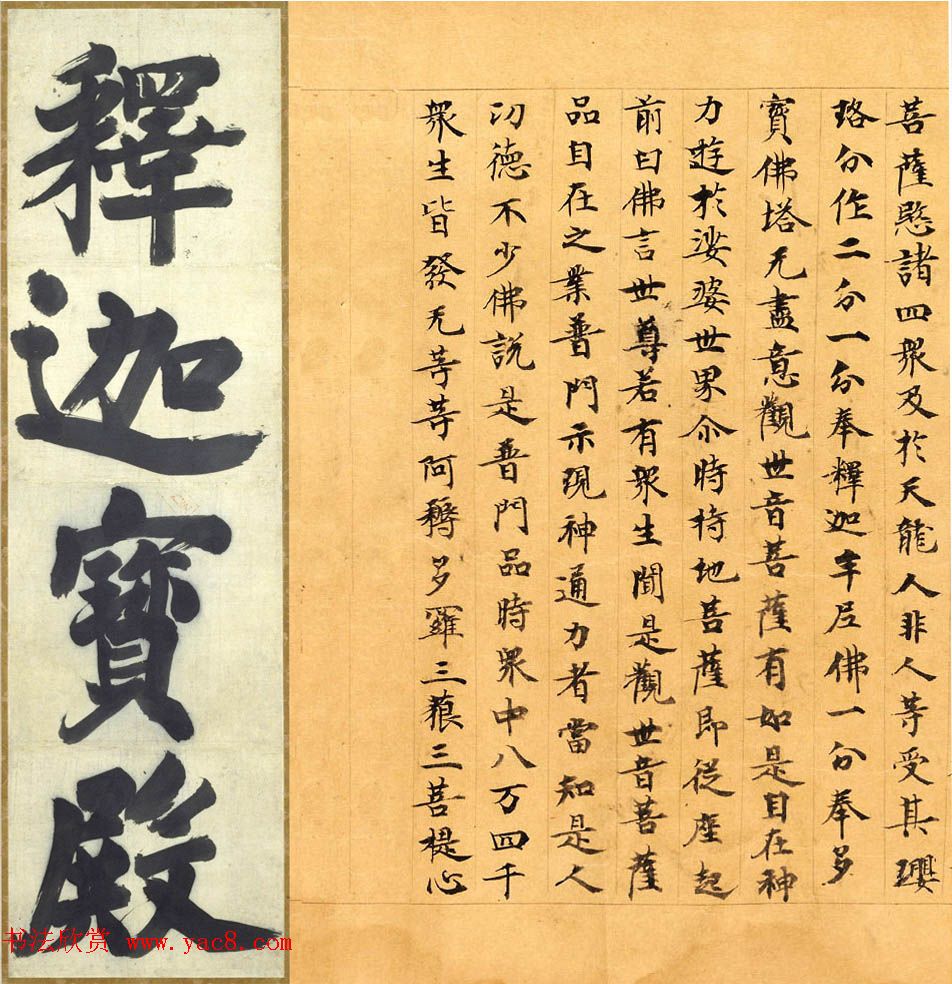 菩薩愍諸四眾及於天龍人非人等受其瓔
珞分作二分一分奉釋迦牟尼佛一分奉多
寶佛塔无盡意觀世音菩薩有如是自在神
力遊於娑婆世界尒時持地菩薩即從座起
前白佛言世尊若有眾生聞是觀世音菩薩
品自在之業普門示現神通力者當知是人
功德不少佛說是普門品時眾中八万四千
眾生皆發无等等阿耨多羅三藐三菩提心
釋迦寶殿
书法欣赏 www.yac8.com